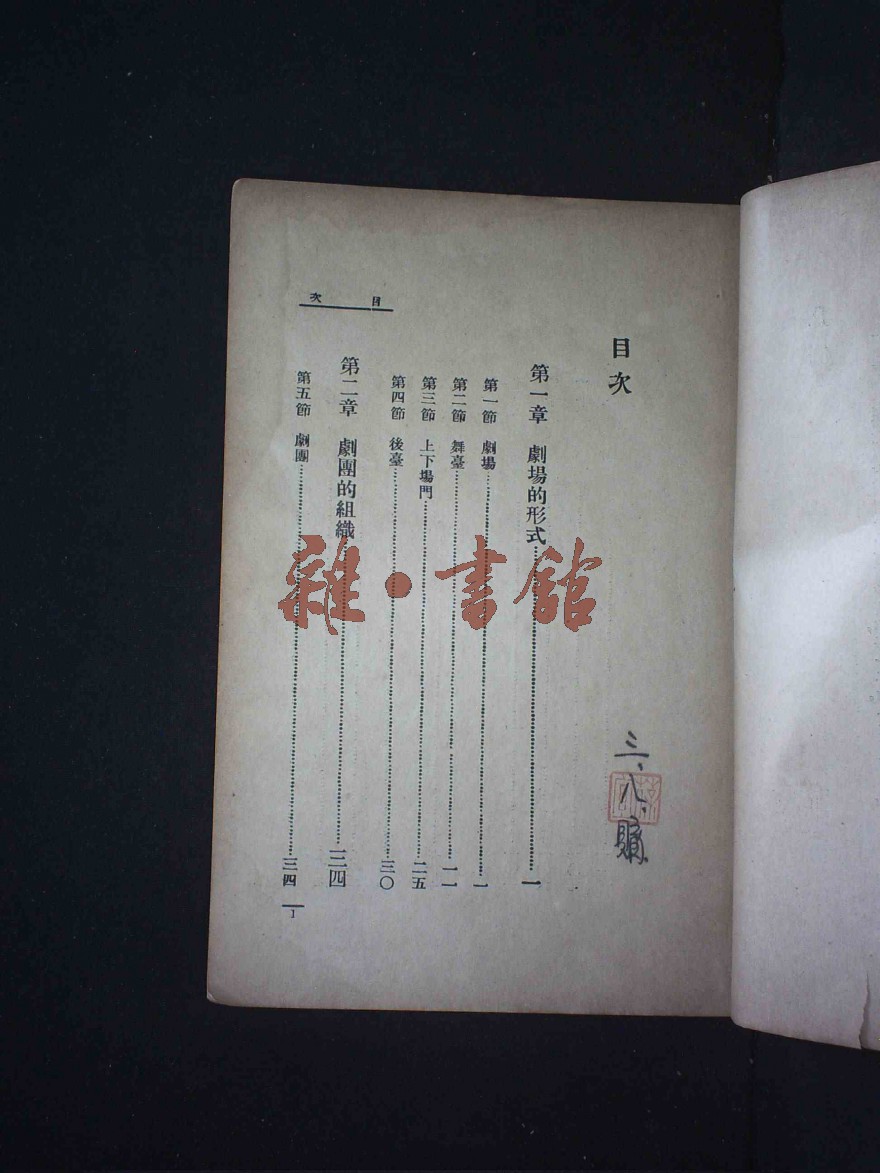 目次
第一章 劇場的形式……一
第一節 劇場……一
第二節 舞臺……一一
第三節 上下場門……二五
第四節 後臺……三〇
第二章 劇團的組織……三四
第五節 劇團……三四
目次
1
三、八、購
雜·書館